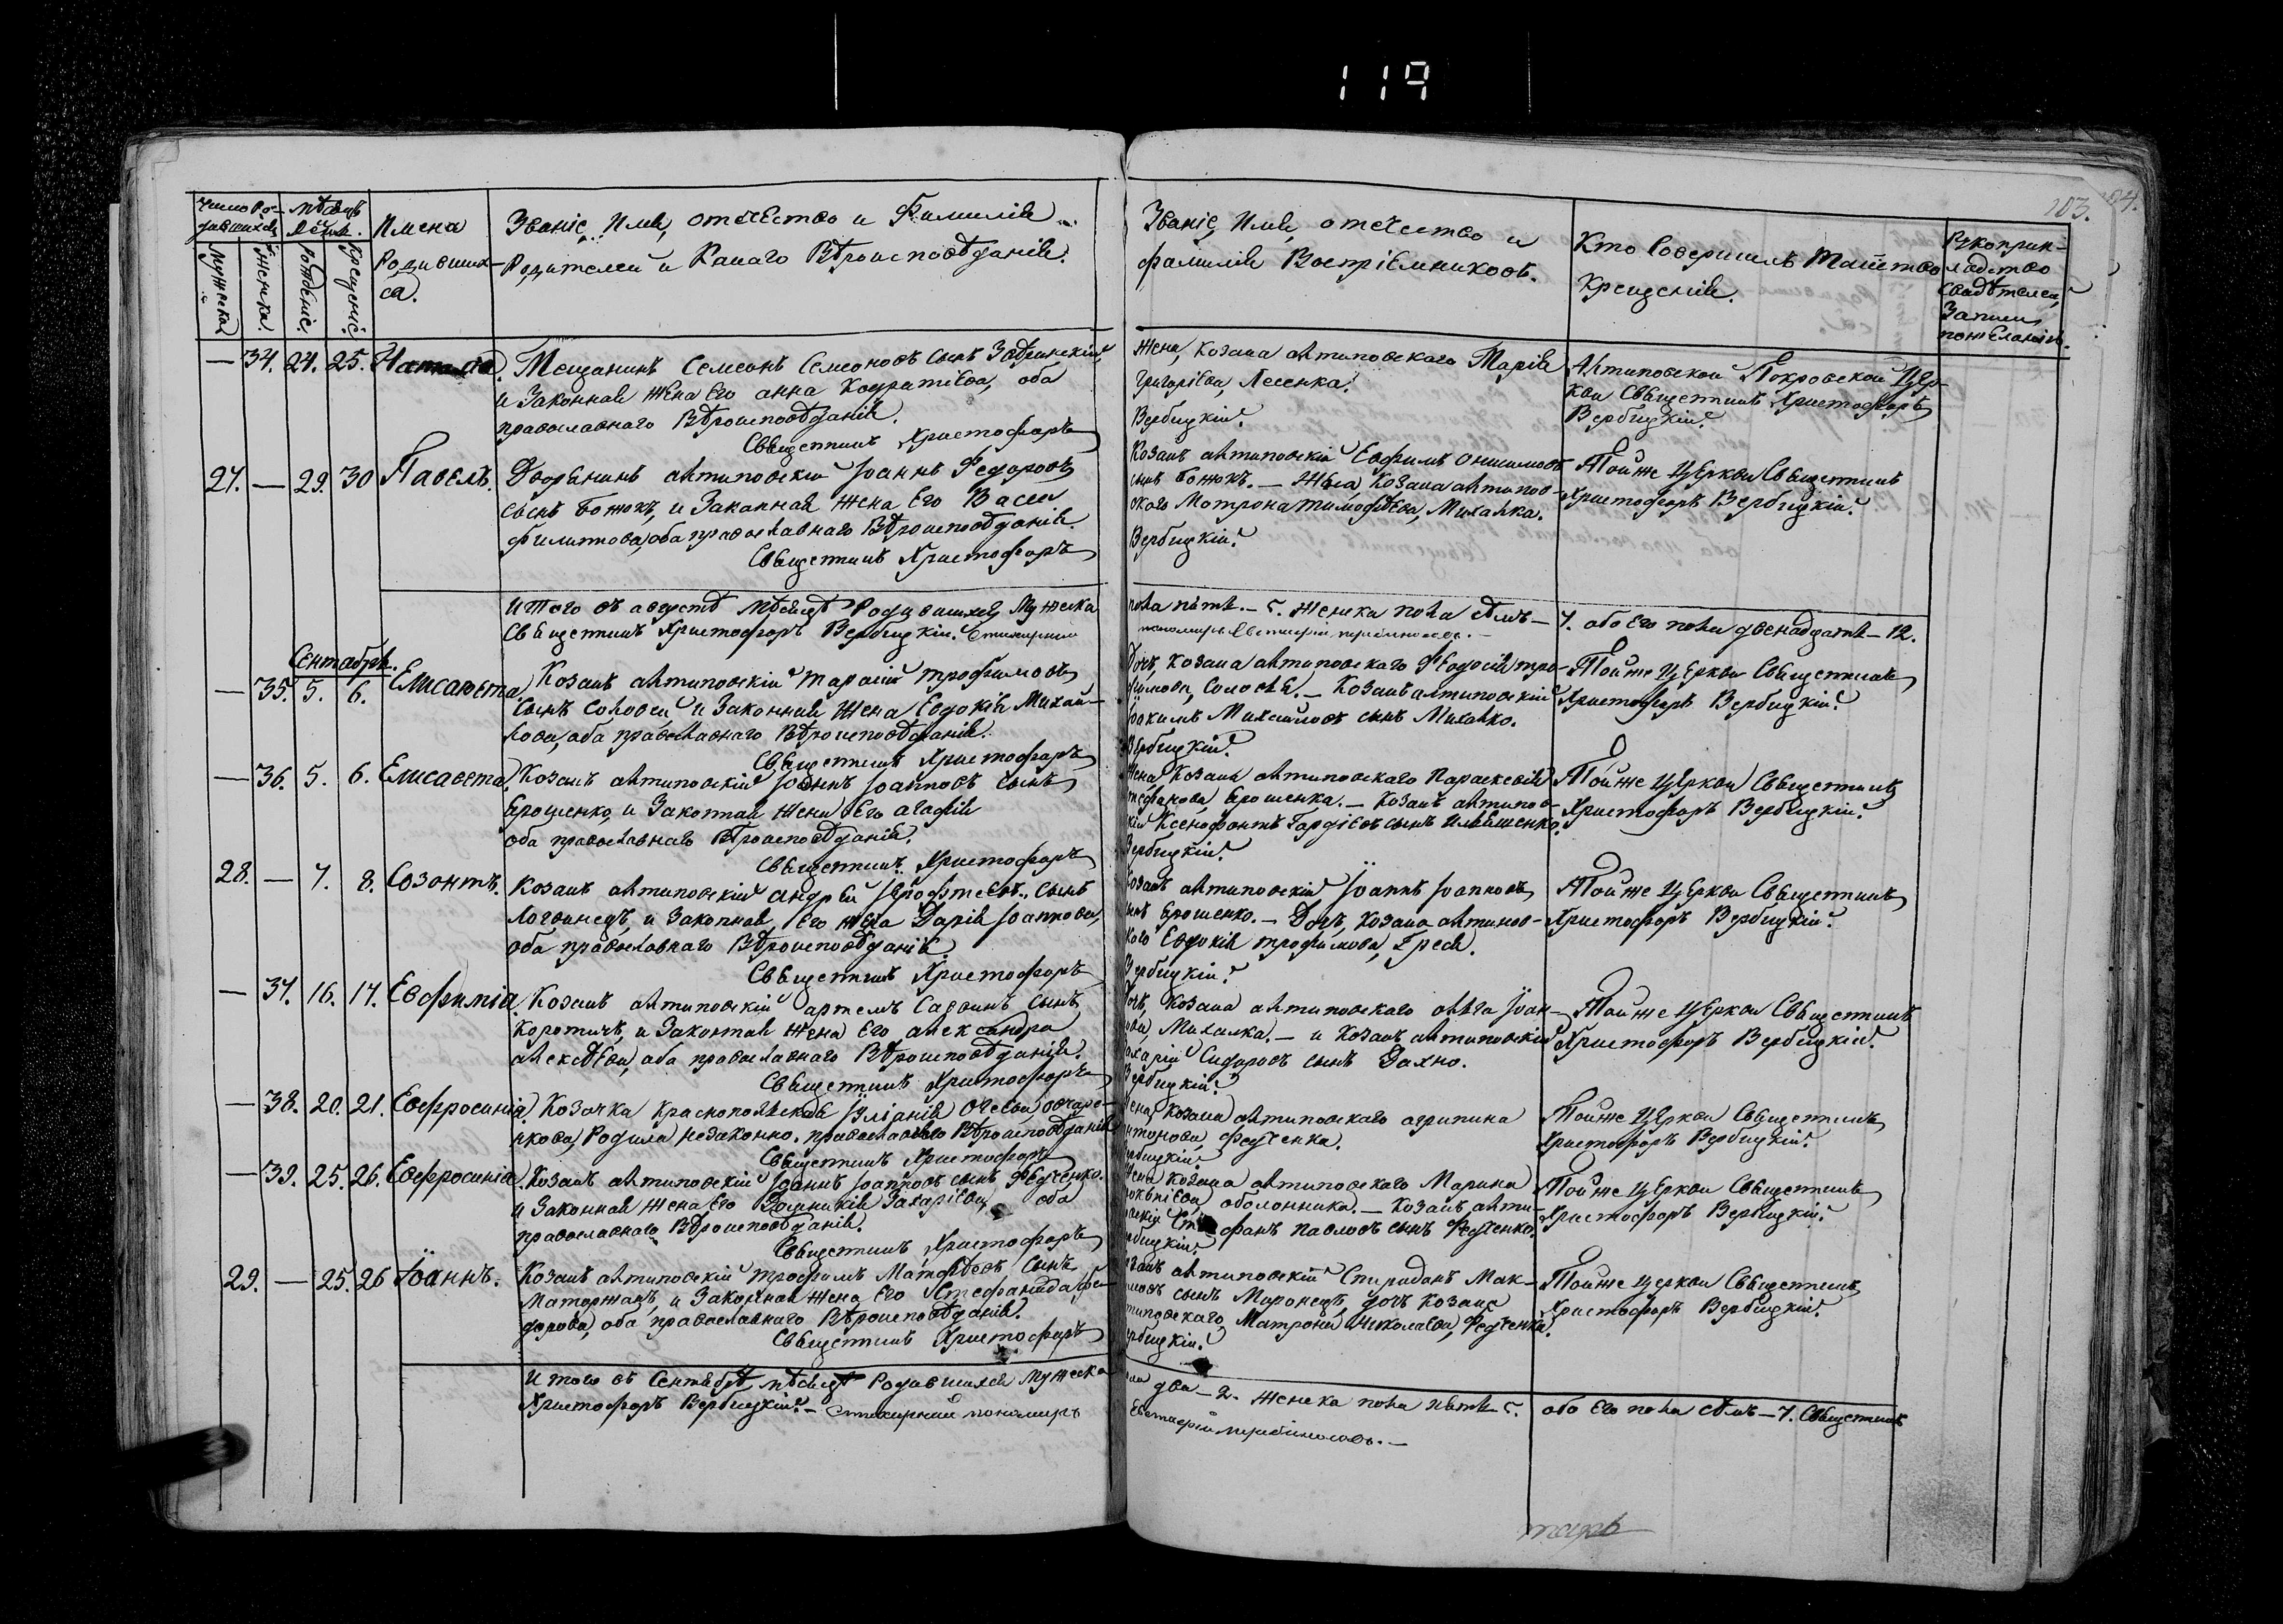 119
103.
Число Ро-
дившихся
Мѣсяцъ
и
День.
Мужеска
Женска.
Рожденіе.
Крещеніе.
Имена
Родивших-
ся.
Званіе, Имя, отчество и Фамилія
Родителей и Какаго Вѣроисповѣданія.
Званіе, Имя, отечество и
фамилія Воспріемниковъ.
Кто Совершилъ Таинство
Крещенія.
Рукоприк-
ладство
Свидѣтелей
Записи
по желанію.
— 34. 24. 25.
Мещанинъ Семеонъ Семеоновъ сынъ
и Законная Жена Его анна Кодратіева, оба
православнаго Вѣроисповѣданія.
Священникъ Христофоръ
Жена, Козака антиповскаго Марія
Григоріева, Лесенка.
Вербицкій.
Антиповской Покровской Цер-
кви Священникъ Христофоръ
Вербицкій.
27. — 29. 30 Павелъ.
Дворянинъ антиповскій Іоаннъ Федоровъ
сынъ Божокъ, и Законная Жена Его Васса
филипова, оба православнаго Вѣроисповѣданія.
Священникъ Христофоръ
Козакъ антиповскій Евфимъ Онисимовъ
сынъ Божокъ. — Жена, Козака антипов-
скаго Мотрона тимофѣева, Михалка.
Вербицкій.
Той же Церкви Священникъ
Христофоръ Вербицкій.
Итого въ августѣ мѣсяцѣ Родившихся Мужеска
пола пять — 5. Женска пола сѣмъ — 7. обоего пола двенадцать — 12.
Священникъ Христофоръ Вербицкій.
пономарь
Сентябрь.
— 35. 5. 6. Елисавета
Козакъ антиповскій тарасій трофимовъ
Сынъ Соловей и Законная Жена Евдокія Михай-
лова, оба православнаго Вѣроисповѣданія.
Священникъ Христофоръ
Дочь, Козака антиповскаго Феодосія тро-
фимова, Соловья. — Козакъ антиповскій
Іоакимъ Михайловъ сынъ Михалко.
Вербицкій.
Той же Церкви Священникъ
Христофоръ Вербицкій.
— 36. 5. 6. Елисавета
Козакъ антиповскій Іоаннъ Іоанновъ сынъ
Ерошенко, и Законная Жена Его агафія
оба православнаго Вѣроисповѣданія.
Священникъ Христофоръ
Жена Козака антиповскаго Параскевія
Стефанова Ерошенка. — Козакъ антипов-
скій Ксенофонтъ Гордіевъ сынъ Ильяшенко.
Вербицкій.
Той же Церкви Священникъ
Христофоръ Вербицкій.
28. — 7. 8. Созонтъ.
Козакъ антиповскій андрей Іерофтеевъ сынъ
Логвинецъ, и Законная Его жена Дарія Іоаннова,
оба православнаго Вѣроисповѣданія.
Священникъ Христофоръ
Козакъ антиповскій Іоаннъ Іоанновъ
сынъ Ерошенко. — Дочь, Козака антипов-
скаго Евдокія трофимова,
Вербицкій.
Той же Церкви Священникъ
Христофоръ Вербицкій.
— 37. 16. 17. Евфимія
Козакъ антиповскій артемъ Саввинъ сынъ
Коротичъ, и Законная Жена Его александра
алексѣева, оба православнаго Вѣроисповѣданія.
Священникъ Христофоръ
Дочь, Козака антиповскаго олга Іоан-
нова, Михалка. — и Козакъ антиповскій
Захарій Сидоровъ сынъ Дахно.
Вербицкій.
Той же Церкви Священникъ
Христофоръ Вербицкій.
— 38. 20. 21. Евфросинія
Козачка Краснопольская Іуліанія
Родила незаконно. православнаго Вѣроисповѣданія
Священникъ Христофоръ
Жена Козака антиповскаго агрипина
антонова, Федченка.
Вербицкій.
Той же Церкви Священникъ
Христофоръ Вербицкій.
— 39. 25. 26. Евфросинія
Козакъ антиповскій Іоаннъ Іоанновъ сынъ Федченко.
и Законная Жена Его Домникія Захаріева, оба
православнаго Вѣроисповѣданія.
Священникъ Христофоръ
Жена Козака антиповскаго Марина
Прокопіева, оболонника. — Козакъ анти-
повскій Стефанъ Павловъ сынъ Федченко.
Вербицкій.
Той же Церкви Священникъ
Христофоръ Вербицкій.
29. — 25. 26 Іоаннъ.
Козакъ антиповскій трофимъ Матфѣевъ Сынъ
Маторжанъ, и Законная жена Его Стефанида, фе-
дорова, оба православнаго Вѣроисповѣданія.
Священникъ Христофоръ
Козакъ антиповскій Спиридонъ Мак-
симовъ сынъ Миронецъ, дочь Козака
антиповскаго, Матрона Николаева, Федченка.
Вербицкій.
Той же Церкви Священникъ
Христофоръ Вербицкій.
Итого въ Сентябрѣ мѣсяцѣ Родившихся Мужеска
пола два — 2. Женска пола пять — 5. обоего пола сѣмъ — 7. Священникъ
Христофоръ Вербицкій. — пономарь